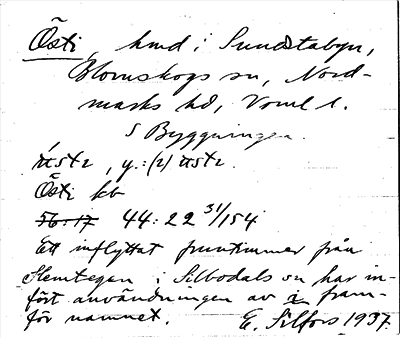 Östi, hmd i Sundstabyn,
Blomskogs sn, Nord-
marks hd, Vrml l.
S Byggningen.
, y.: (2)
Östi kb
56:17 44:22 31/154
Ett inflyttat fruntimmer från
Slemtegen i Silbodals sn har in-
fört användningen av i fram-
för namnet. E. Silfors 1937.